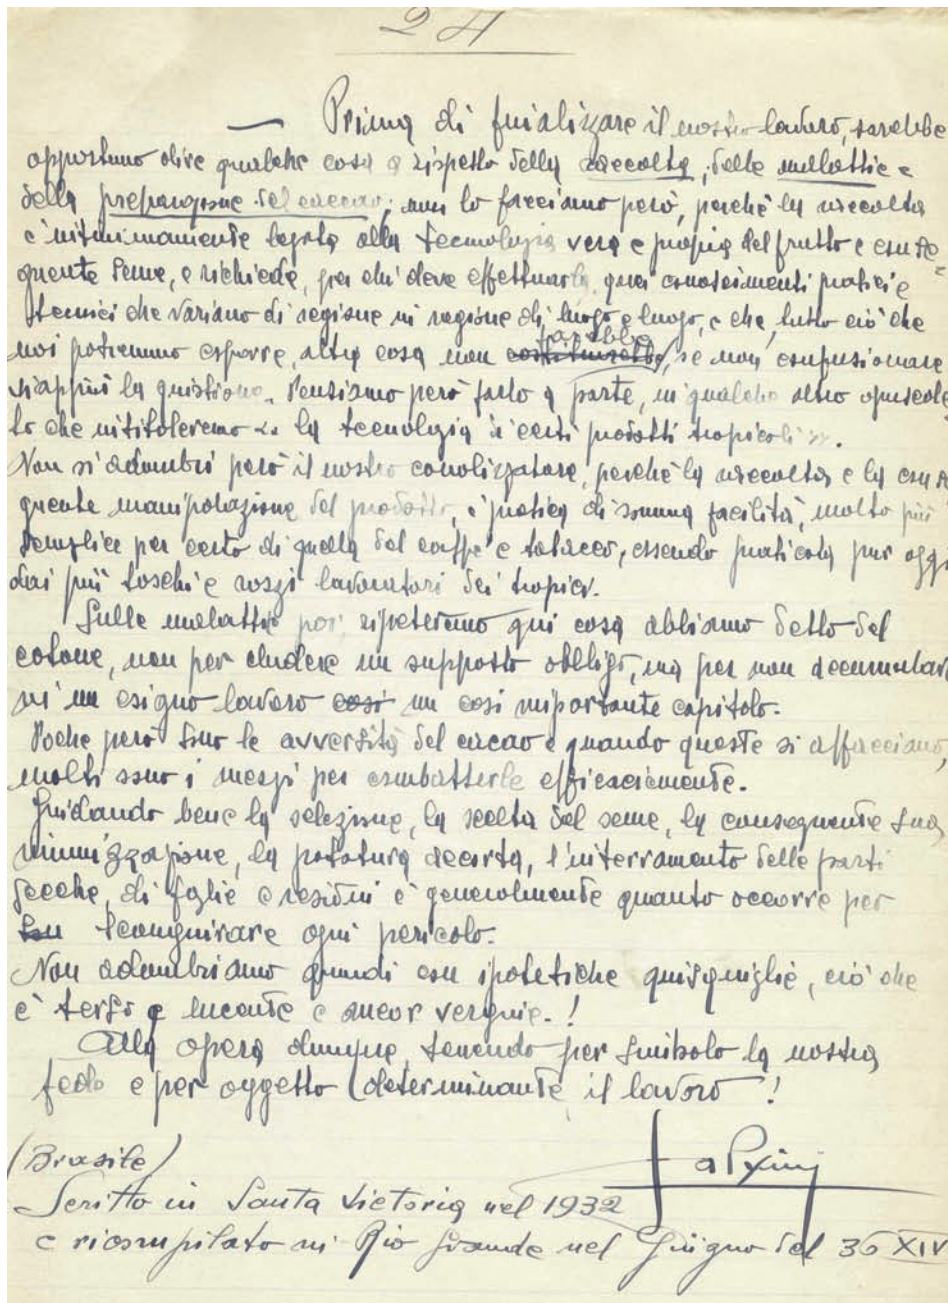 24
— Prima di finalizzare il nostro lavoro, sarebbe
opportuno dire qualche cosa a rispetto della raccolta, delle malattie e
della preparazione del caccao; non lo facciamo però, perchè la raccolta
è intimamente legata alla tecnologia vera e propia del frutto e conse=
quente seme, e richiede, per chi deve effettuarla, quei conoscimenti pratici e
tecnici che variano di regione in regione di luogo e luogo, e che, tutto ciò che
noi potremmo esporre, altra cosa non sarebbe, se non confusionare
viappiù la questione. Pensiamo però farlo a parte, in qualche altro opuscolet
to che intitoleremo « la tecnologia di certi prodotti tropicali ».
Non si adombri però il nostro conolizzatore, perchè la raccolta e la conse
quente manipolazione del prodotto, è pratica di somma facilità, molto più
semplice per certo di quella del caffè e tabacco, essendo praticata pur oggi
dai più loschi e rozzi lavoratori dei tropici.
Sulle malattie poi, ripeteremo qui cosa abbiamo detto del
cotone, non per eludere un supposto obbligo, ma per non accumular
in un esiguo lavoro così un così importante capitolo.
Poche però sono le avversità del cacao e quando queste si affacciano,
molti sono i mezzi per combatterle efficaciemente.
Guidando bene la selezione, la scelta del seme, la conseguente sua
immunizzazione, la potatura accorta, l'interramento delle parti
secche, di foglie e residui è generolmente quanto occorre per
scongiurare ogni pericolo.
Non adombriamo quindi con ipotetiche quisquiglie, ciò che
è terso e lucente e ancor vergine. !
Alla opera dunque, tenendo per simbolo la nostra
fede e per oggetto determinante, il lavoro !
(Brasile)
Scritto in Santa Victoria nel 1932
e ricompilato in Rio Grande nel Giugno del 36 XIV